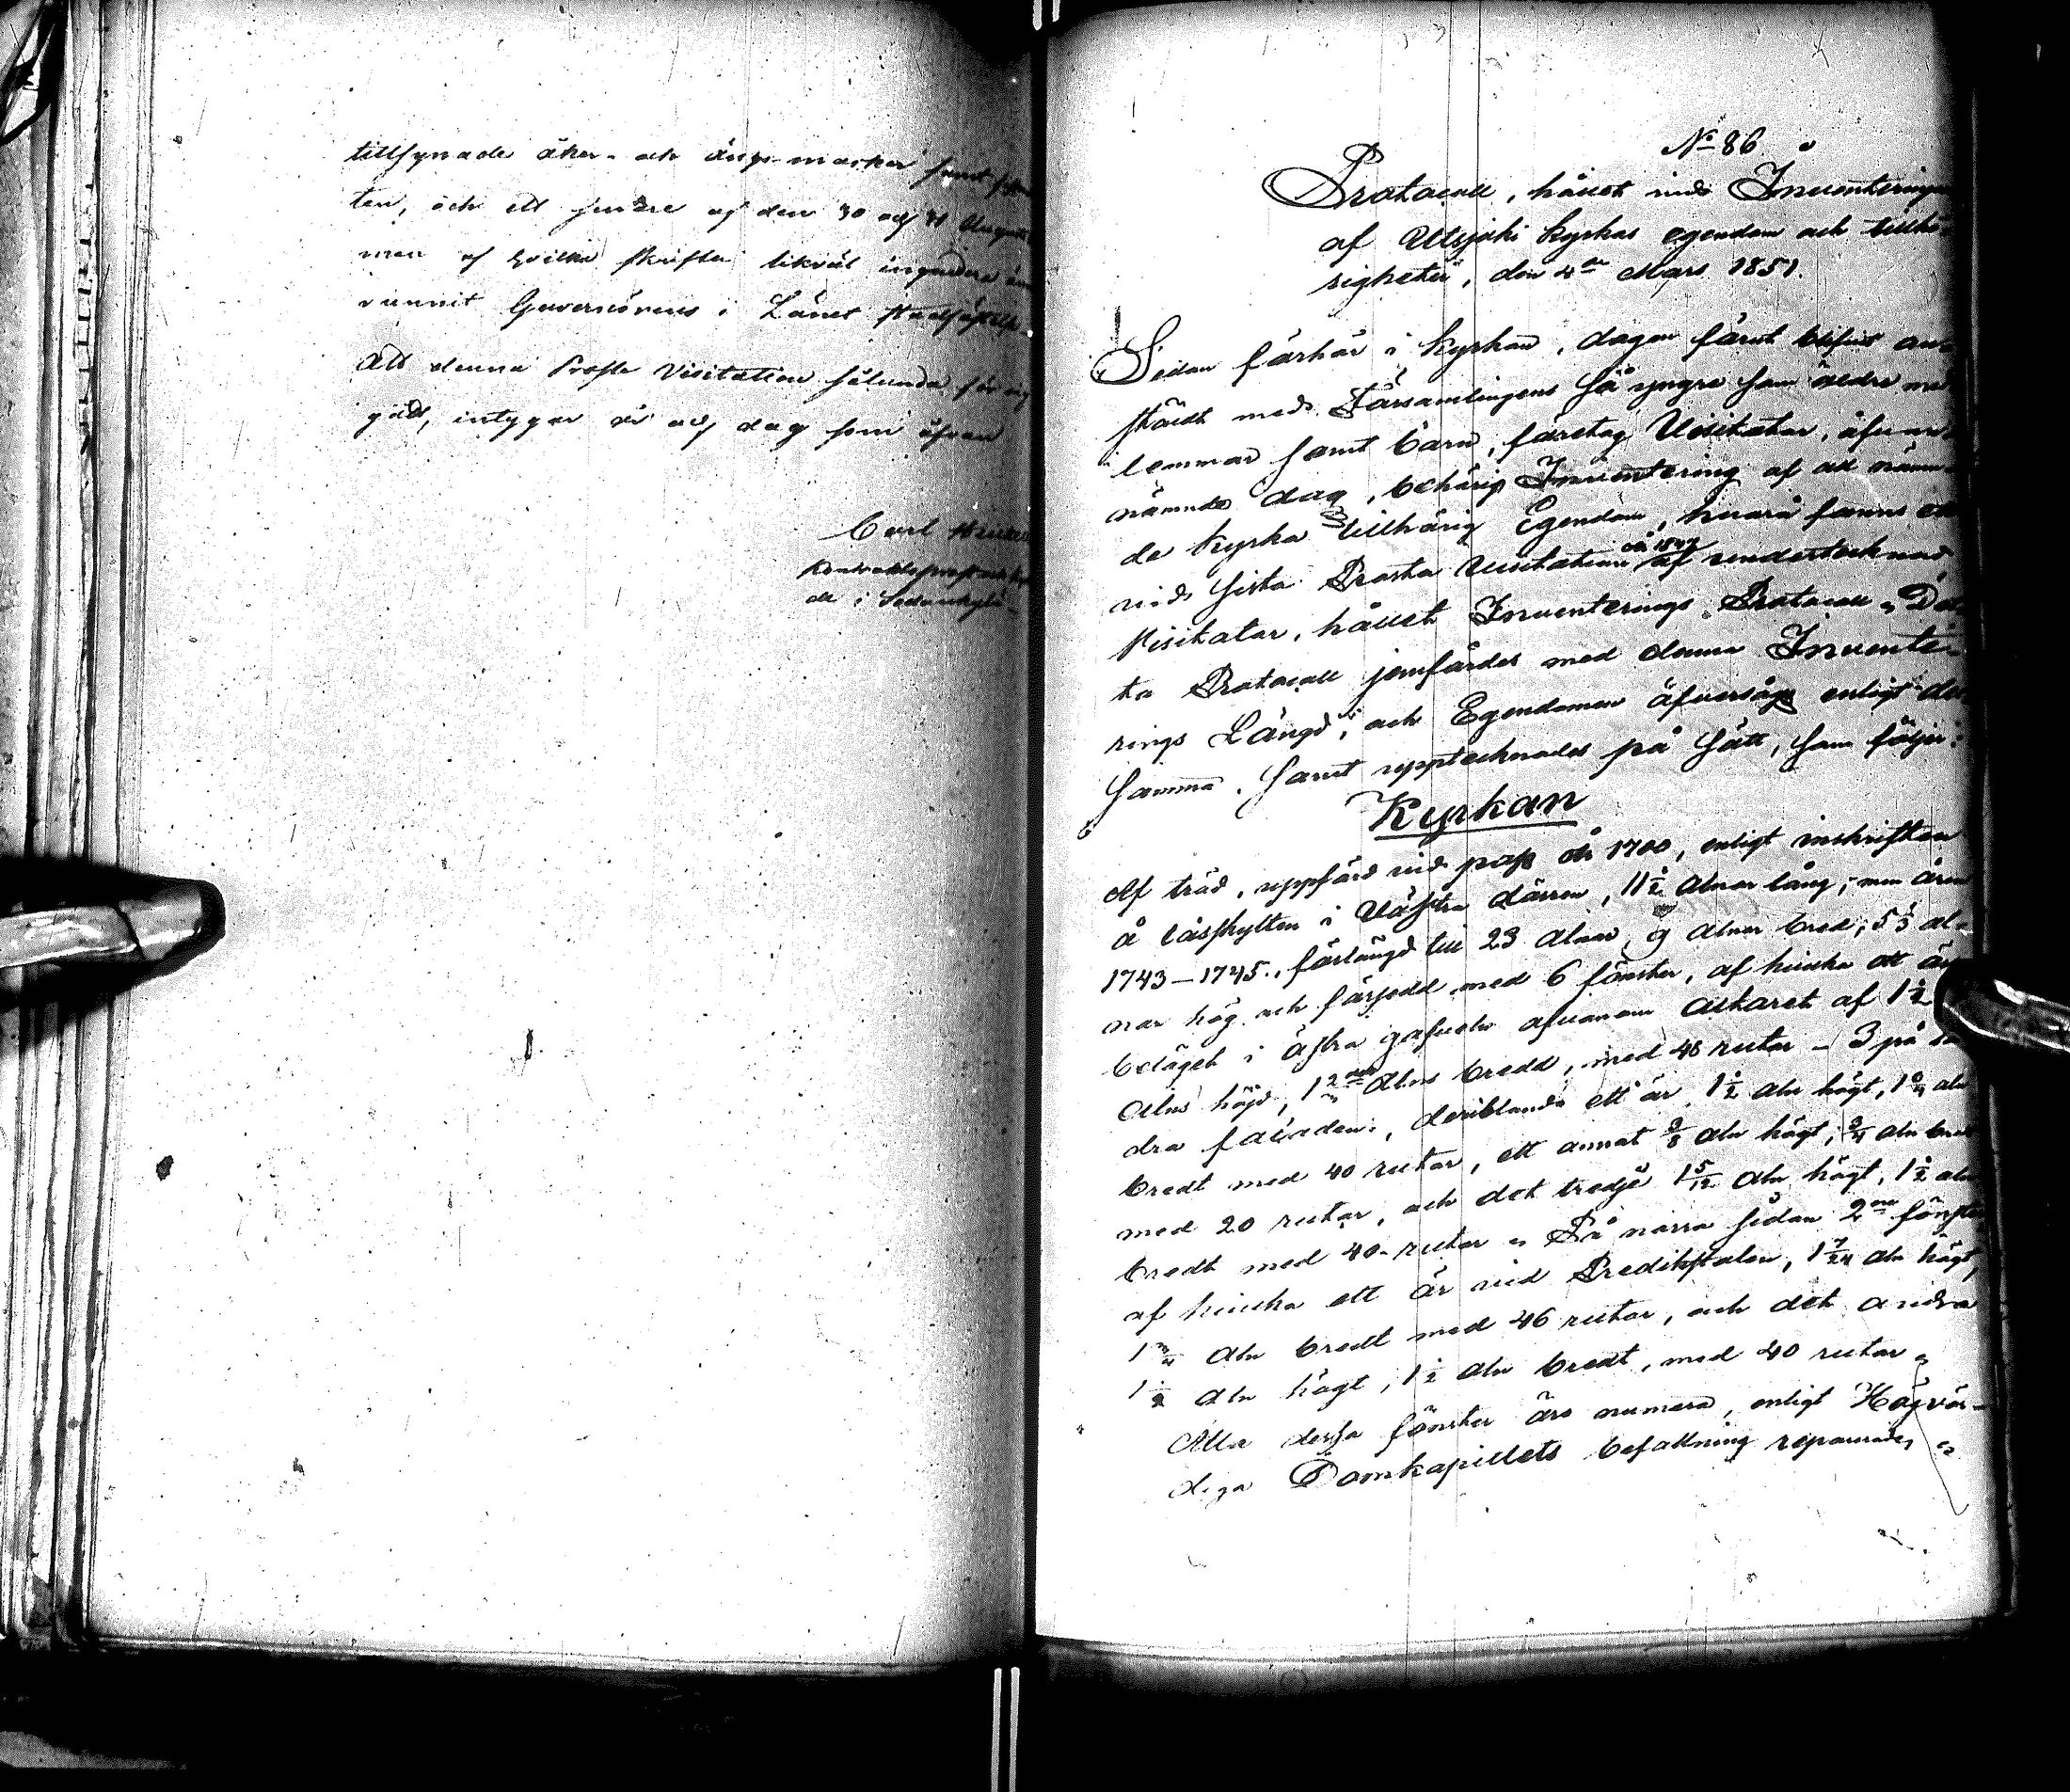 tillsynade åker- och ängs-marker samt
ten, och ett sednare af den 30 och 31 Augusti
men af hvilka skrifter likväl ingendera än
vunnit Guvernörens i Länet
Att denna Prosts Visitation sålunda för sig
gådt, intygar år och dag som ofvan
Carl
i Sodankylä
No 86
Protocoll, hållet vid Inventeringen
af Utsjoki Kyrkas egendom och tillhö-
righeter, den 4de Mars 1851.
Sedan förhör i Kyrkan, dagen förut blifvit an-
stäldt med Församlingens så yngre som äldre med
lemmar samt barn, företog Visitator, ofvan
nämnde dag, behörig Inventering af all nämn-
de Kyrka tillhörig Egendom, hvarå fanns ett
vid sista Prosta Visitation år 1847 af undertecknad
Visitator, hållet Inventerings Protocoll. Det-
ta Protocoll jemfördes med denna Invente-
rings Längd, och Egendomen öfversågs enligt det
samma, samt upptecknades på sätt, som följer:
Kyrkan
Af träd, uppförd vid pass år 1700, enligt inskriften
å låsskylten i Västra dörren, 11½ Alnar lång, men åren
1743–1745., förlängd till 23 Alnar, 9 Alnar bred, 5⅓ al-
nar hög och försedd med 6 fönster, af hvilka ett är
beläget i östra gafveln ofvanom Altaret af 1½
Alns höjd, Alns bredd, med 48 rutor – 3 på sö
dra facaden, deribland ett är 1½ aln högt, aln
bredt med 40 rutor, ett annat aln högt, ¾ aln bredt
med 20 rutor, och det tredje 1 5/12 aln högt, 1½ aln
bredt med 40 rutor. På norra sidan 2ne fönster
af hvilka ett är vid Predikstolen, 1 7/24 aln högt,
1¾ aln bredt med 46 rutor, och det andra
1½ aln högt, 1½ aln bredt, med 40 rutor.
Alla dessa fönster äro numera, enligt Högvör-
diga Domkapitlets befallning reparerade,